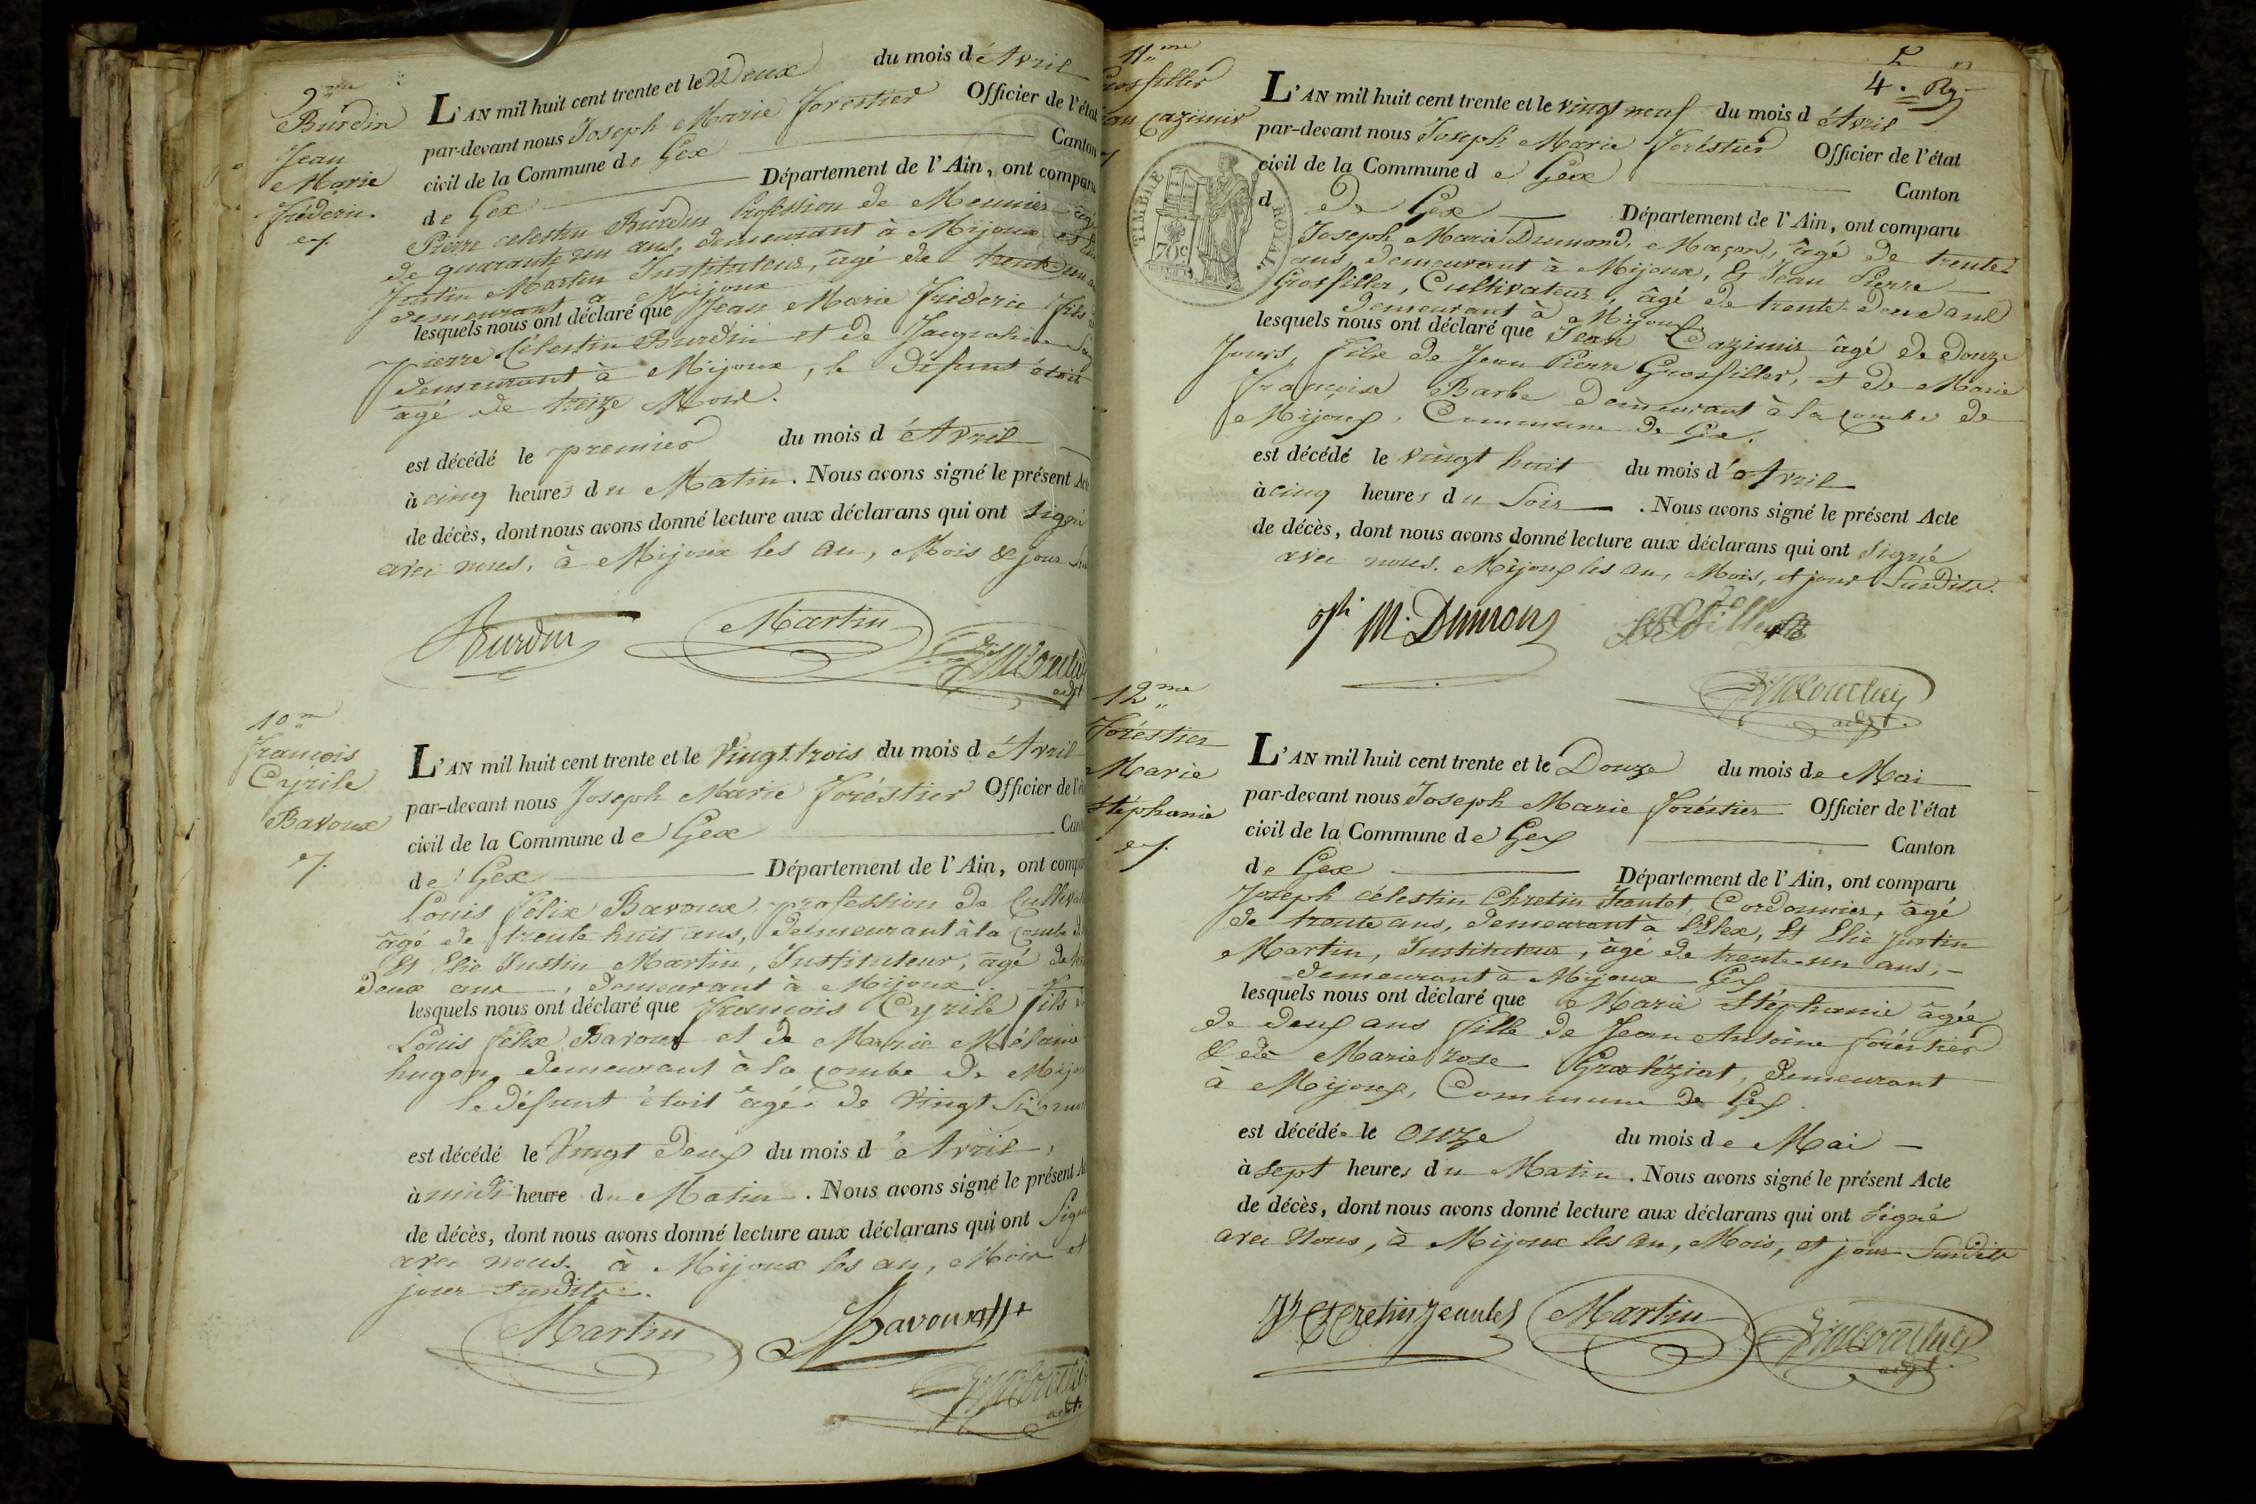 9me
Burdin
Jean
Marie
Fréderic.
L'AN mil huit cent trente et le Deux du mois d'Avril
par-devant nous Joseph Marie Forestier Officier de l'état
civil de la Commune de Gex Canton
de Gex Département de l'Ain, ont comparu
Pierre celestin Burdin Profession de Meunier âgé
de quarante un ans, demeurant à Mijoux et
Justin Martin Instituteur, âgé de trente un
demeurant à Mijoux
lesquels nous ont déclaré que Jean Marie Fréderic fils
Pierre Célestin Burdin et de Jacqueline
demeurant à Mijoux, le défunt étoit
âgé de treize Mois.
est décédé le premier du mois d'Avril
à cinq heures du Matin. Nous avons signé le présent Acte
de décès, dont nous avons donné lecture aux déclarans qui ont signé
avec nous, à Mijoux les an, Mois & jour
Burdin Martin
adjt
10me
François
Cyrile
Bavoux
L'AN mil huit cent trente et le Vingt trois du mois d'Avril
par-devant nous Joseph Marie Foréstier Officier de l'état
civil de la Commune de Gex
de Gex Département de l'Ain, ont comparu
Louis Félix Bavoux, profession de
âgé de trente huit ans, demeurant à la combe
Et Elie Justin Martin, Instituteur, âgé de
deux ans, demeurant à Mijoux.
lesquels nous ont déclaré que François Cyrile fils
Louis félix Bavoux et de Marie Mélanie
hugon, demeurant à la combe de
le défunt étoit âgé de Vingt Six
est décédé le Vingt Deux du mois d'Avril,
à midi heure du Matin. Nous avons signé le présent
de décès, dont nous avons donné lecture aux déclarans qui ont
avec nous. à Mijoux les an, Mois et
jour susdits.
Martin Bavoux
adjt.
4.
11me
Grosfiller
Jean Cazimir
TIMBRE ROYAL
70c
L'AN mil huit cent trente et le vingt neuf du mois d'Avril
par-devant nous Joseph Marie Foréstier Officier de l'état
civil de la Commune de Gex Canton
d De Gex Département de l'Ain, ont comparu
Joseph Marie Dumond, Maçon, âgé de trente
ans, demeurant à Mijoux, Et Jean Pierre
Grosfiller, Cultivateur, âgé de trente-deux ans
demeurant à Mijoux.
lesquels nous ont déclaré que Jean Cazimir âgé de douze
Jours, fils de Jean Pierre Grosfiller, et de Marie
Françoise Barbe demeurant à la combe de
Mijoux, Commune de Gex.
est décédé le vingt huit du mois d'Avril
à cinq heures du Soir. Nous avons signé le présent Acte
de décès, dont nous avons donné lecture aux déclarans qui ont Signé
avec nous. Mijoux les an, Mois, et jour Susdits.
M. Dumond
adjt.
12me
Foréstier
Marie
Stéphanie
L'AN mil huit cent trente et le Douze du mois de Mai
par-devant nous Joseph Marie foréstier Officier de l'état
civil de la Commune de Gex Canton
de Gex Département de l'Ain, ont comparu
Joseph célestin Chretin Jeantet, Cordonnier, âgé
de trente ans, demeurant à Et Elie justin
Martin, Instituteur, âgé de trente-un ans,
demeurant à Mijoux Gex
lesquels nous ont déclaré que Marie Stéphanie âgée
de deux ans fille de Jean Antoine foréstier
& de Marie rose Grosléziat, demeurant
à Mijoux, Commune de Gex
est décédée le onze du mois de Mai
à sept heures du Matin. Nous avons signé le présent Acte
de décès, dont nous avons donné lecture aux déclarans qui ont signé
avec Nous, à Mijoux les an, Mois, et jour Susdits
Martin
adjt.